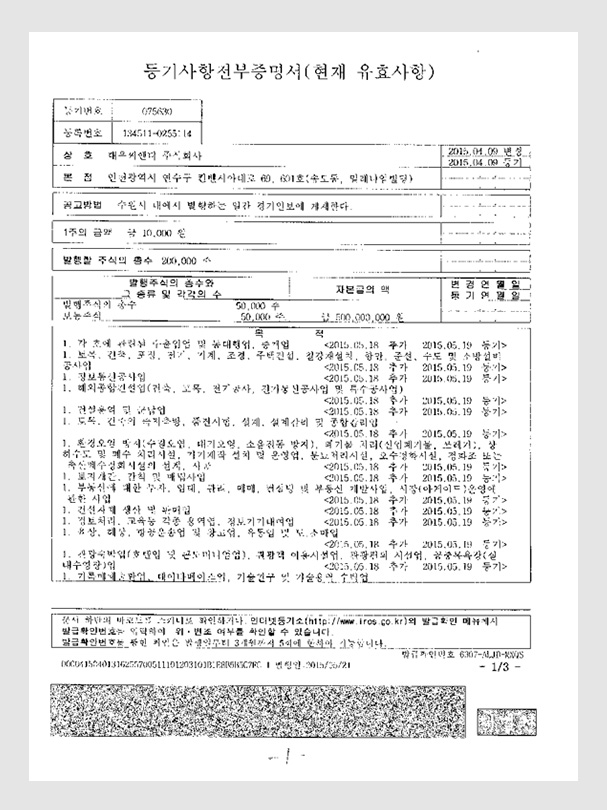 등기사항전부증명서(현재 유효사항)
등기번호 075630
등록번호 134511-0255114
상 호 대우씨앤디 주식회사 2015.04.09 변경
2015.04.09 등기
본 점 인천광역시 연수구 컨벤시아대로 69, 601호(송도동, 밀레니엄빌딩)
공고방법 수원시 내에서 발행하는 일간 경기일보에 게재한다.
1주의 금액 금 10,000 원
발행할 주식의 총수 200,000 주
발행주식의 총수와 그 종류 및 각각의 수 자본금의 액 변 경 연 월 일
등 기 연 월 일
발행주식의 총수 50,000 주
보통주식 50,000 주 금 500,000,000 원
목 적
1. 각 호에 관련된 수출입업 및 동대행업, 중개업 <2015.05.18 추가 2015.05.19 등기>
1. 토목, 건축, 포장, 전기, 기계, 조경, 주택건설, 철강재설치, 항만, 준설, 수도 및 소방설비
공사업 <2015.05.18 추가 2015.05.19 등기>
1. 정보통신공사업 <2015.05.18 추가 2015.05.19 등기>
1. 해외종합건설업(건축, 토목, 전기공사, 전기통신공사업 및 특수공사업)
<2015.05.18 추가 2015.05.19 등기>
1. 건설용역 및 군납업 <2015.05.18 추가 2015.05.19 등기>
1. 토목, 건축의 측지측량, 품질시험, 설계, 설계감리 및 종합감리업
<2015.05.18 추가 2015.05.19 등기>
1. 환경오염 방지(수질오염, 대기오염, 소음진동 방지), 폐기물 처리(산업폐기물, 쓰레기), 상
하수도 및 폐수 처리시설, 기기제작 설치 및 운영업, 분뇨처리시설, 오수정화시설, 정화조 또는
축산폐수정화시설의 설계, 시공 <2015.05.18 추가 2015.05.19 등기>
1. 토지개간, 간척 및 매립사업 <2015.05.18 추가 2015.05.19 등기>
1. 부동산에 대한 투자, 임대, 관리, 매매, 컨설팅 및 부동산 개발사업, 시장(아케이드)운영에
관한 사업 <2015.05.18 추가 2015.05.19 등기>
1. 건설자재 생산 및 판매업 <2015.05.18 추가 2015.05.19 등기>
1. 정보처리, 교육등 각종 용역업, 정보기기대여업 <2015.05.18 추가 2015.05.19 등기>
1. 육상, 해상, 항공운송업 및 창고업, 유통업 및 도,소매업
<2015.05.18 추가 2015.05.19 등기>
1. 관광숙박업(호텔업 및 콘도미니엄업), 관광객 이용시설업, 관광편의 시설업, 공중목욕장(실
내수영장)업 <2015.05.18 추가 2015.05.19 등기>
1. 기록매체출판업, 데이타베이스의, 기술연구 및 기술용역 수탁업
문서 하단의 바코드를 스캐너로 확인하거나, 인터넷등기소(http://www.iros.go.kr)의 발급확인 메뉴에서
발급확인번호를 입력하여 위·변조 여부를 확인할 수 있습니다.
발급확인번호를 통한 확인은 발행일부터 3개월까지 5회에 한하여 가능합니다.
발급확인번호 6307-ALJD-NXQS
발행일:2015/05/21 - 1/3 -
- 1 -